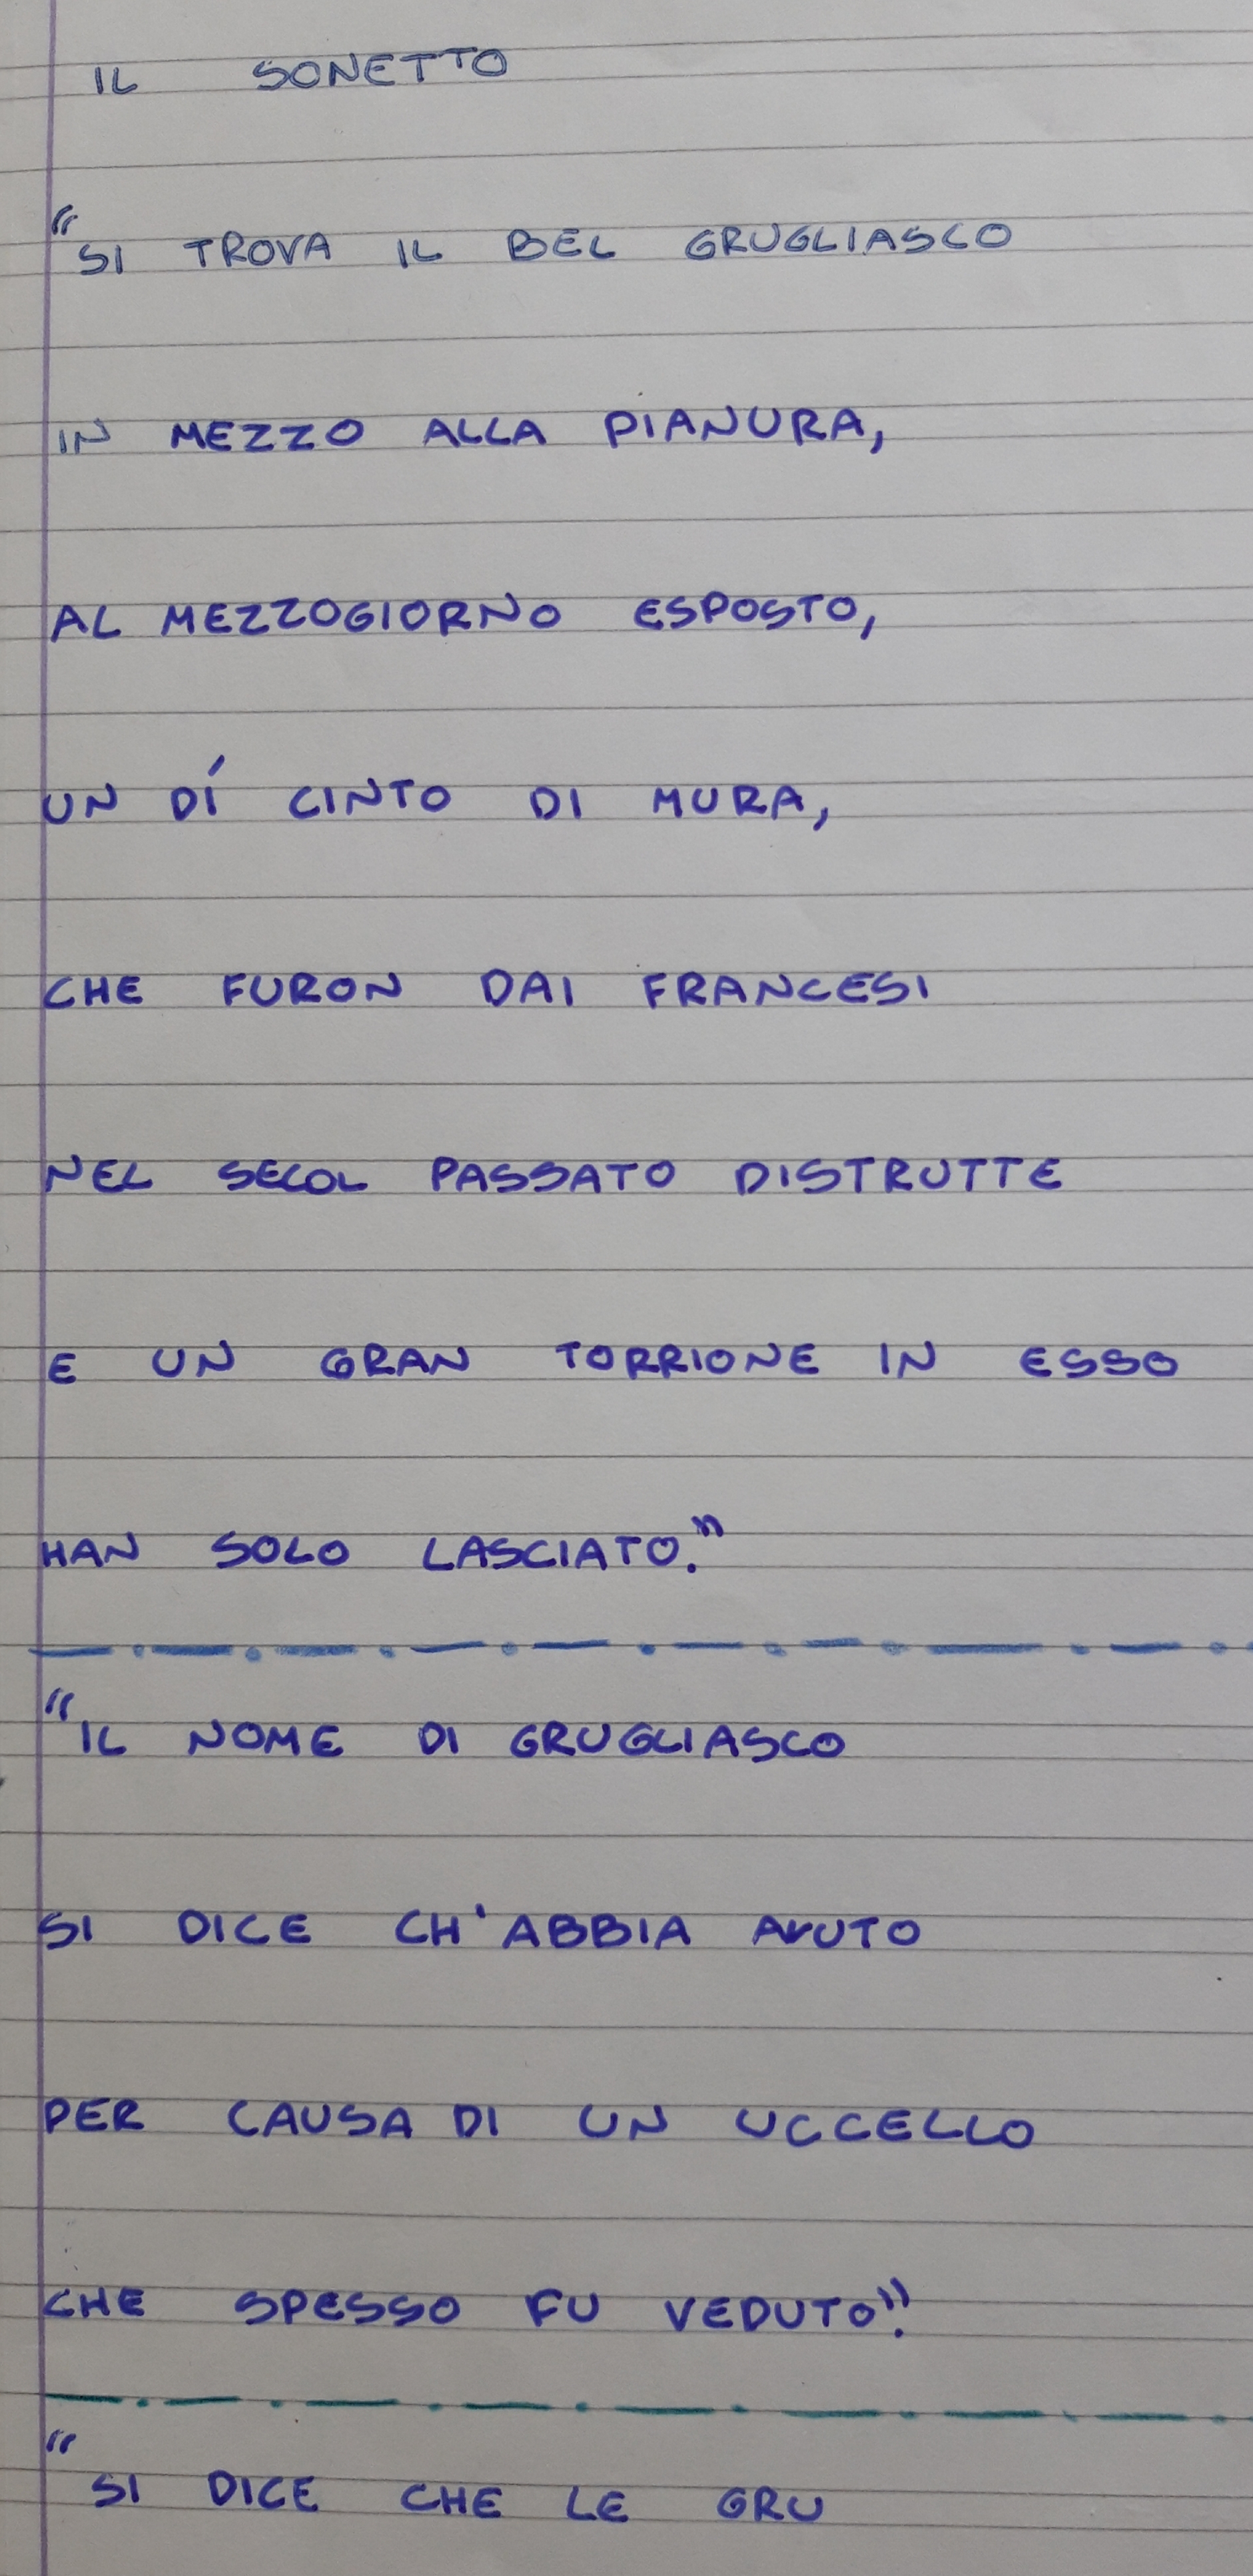 IL SONETTO
“SI TROVA IL BEL GRUGLIASCO
IN MEZZO ALLA PIANURA,
AL MEZZOGIORNO ESPOSTO,
UN DÍ CINTO DI MURA,
CHE FURON DAI FRANCESI
NEL SECOL PASSATO DISTRUTTE
E UN GRAN TORRIONE IN ESSO
HAN SOLO LASCIATO.”
“IL NOME DI GRUGLIASCO
SI DICE CH'ABBIA AVUTO
PER CAUSA DI UN UCCELLO
CHE SPESSO FU VEDUTO”.
“SI DICE CHE LE GRU